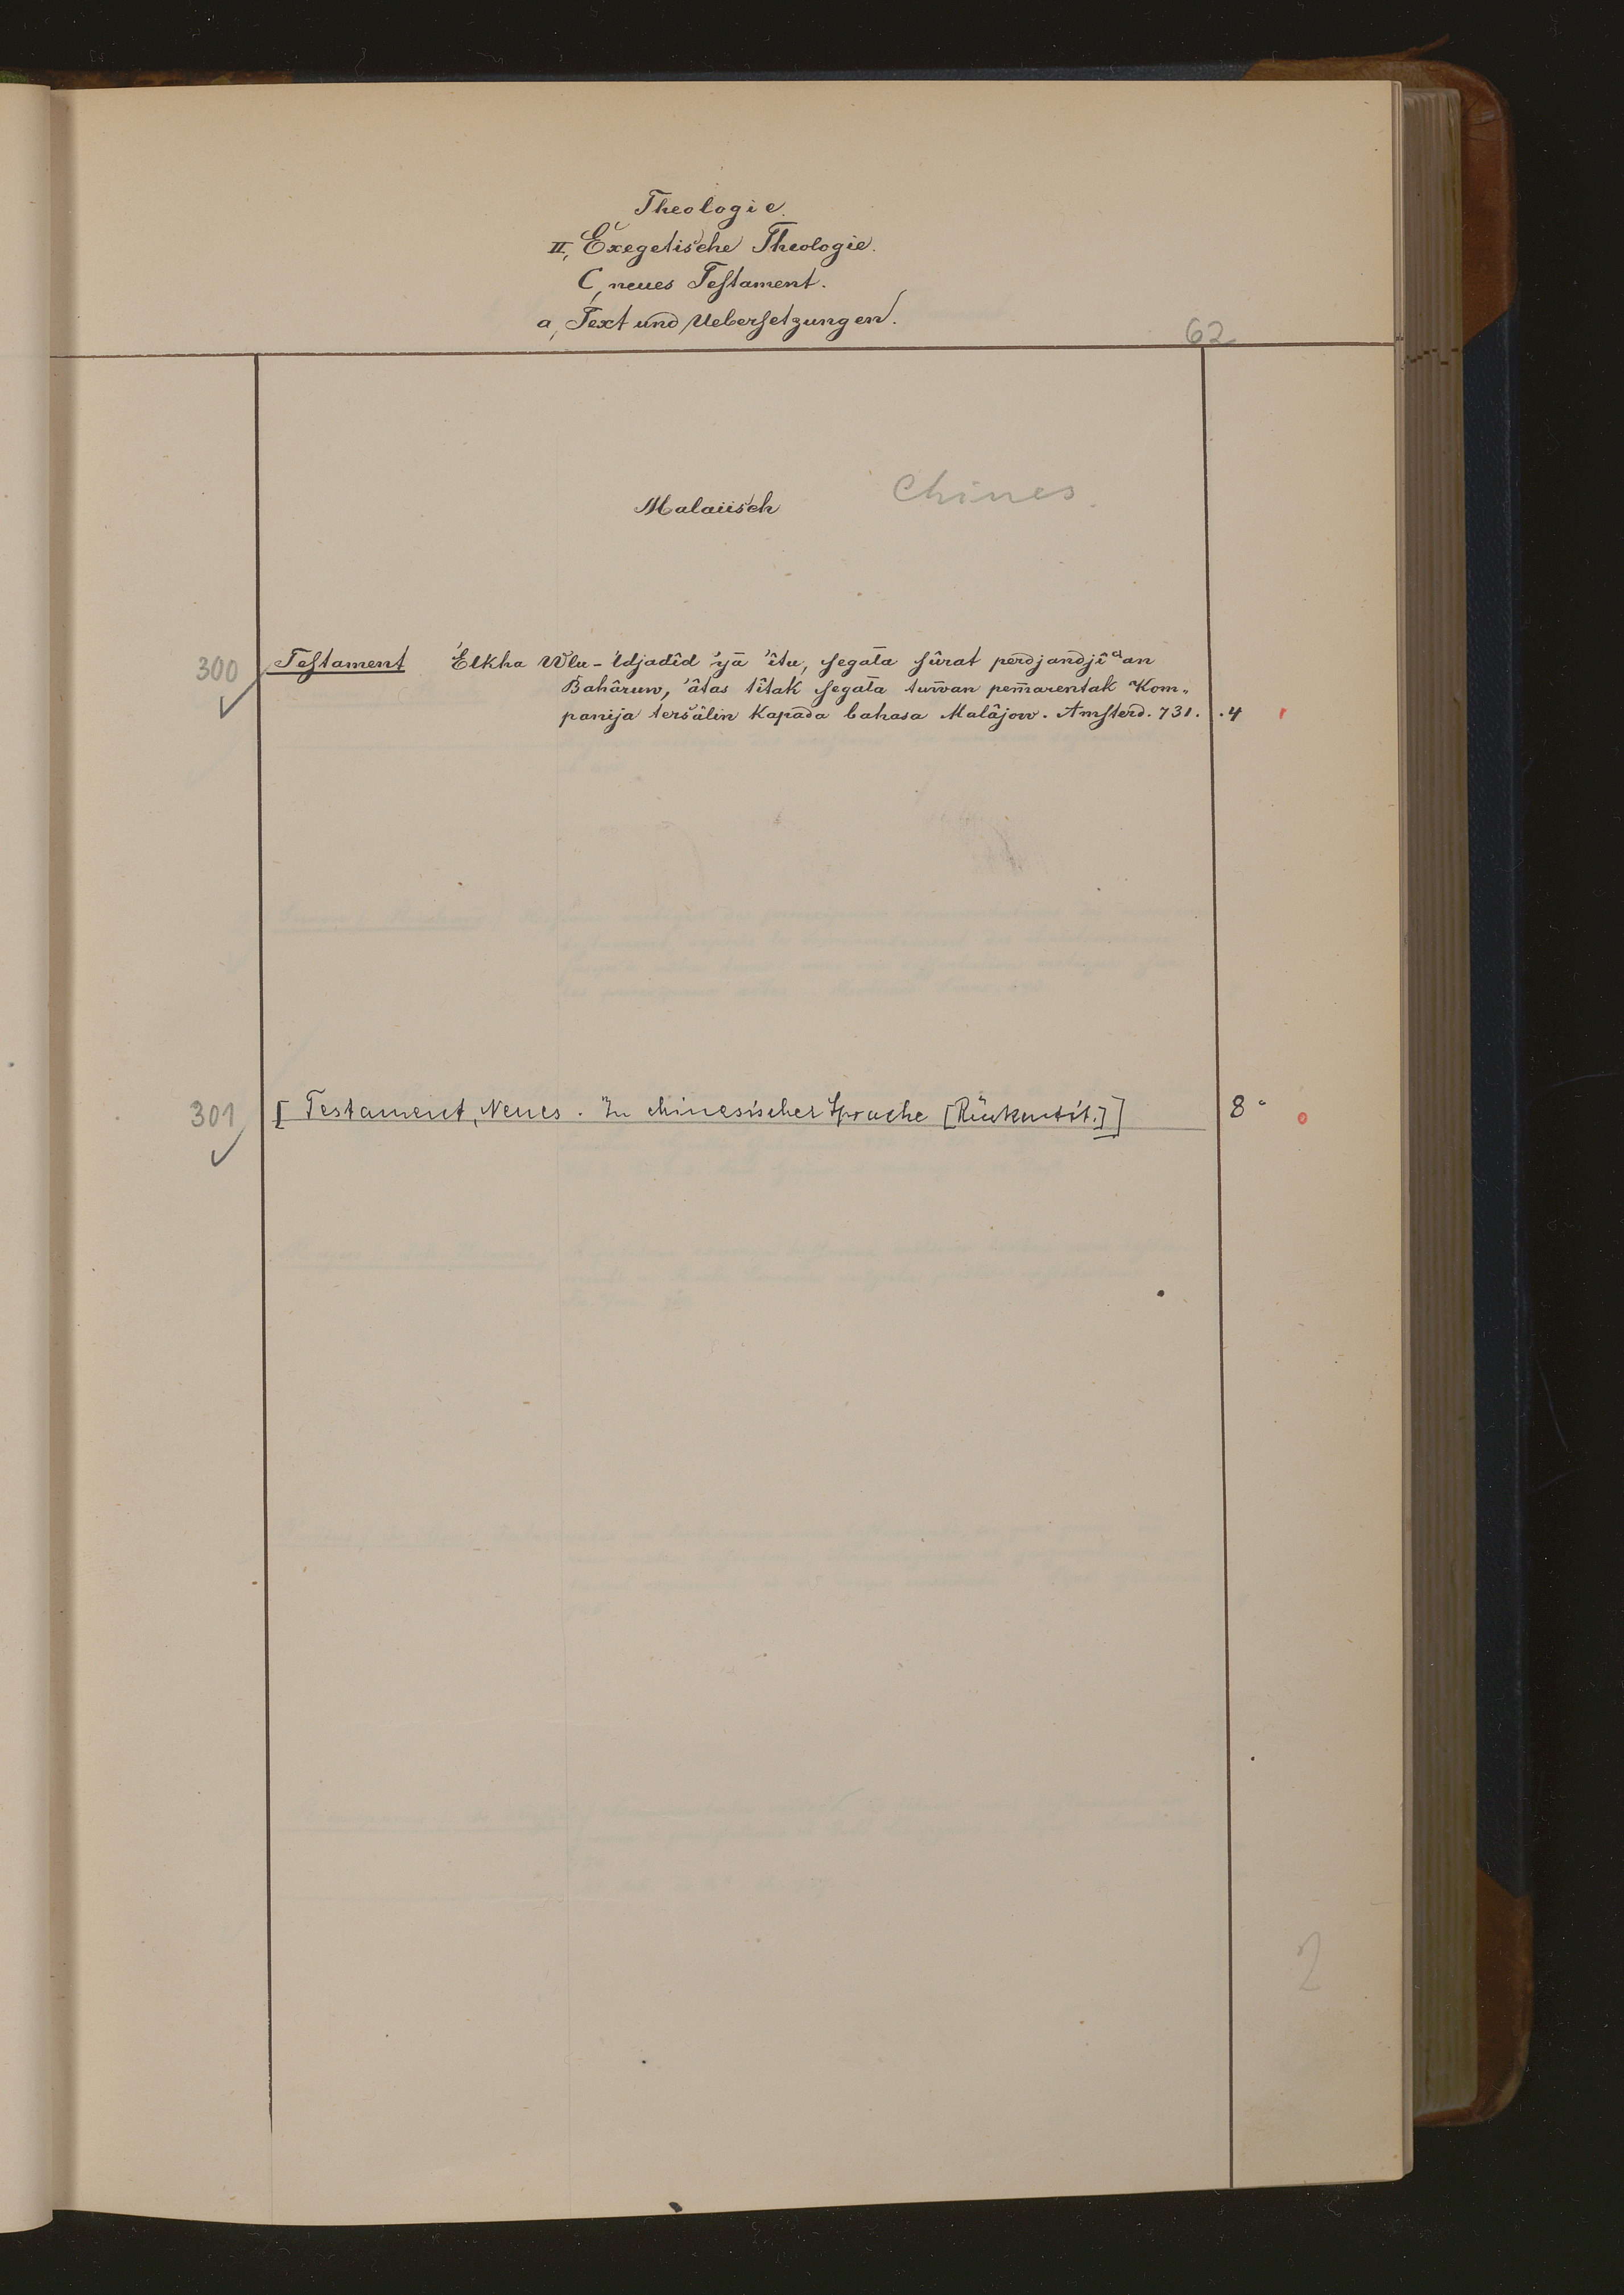 Theologie.
II, Exegetische Theologie.
C, neues Testament.
a, Text und Uebersetzungen.
62
Malaiisch
Chines.
300 Testament Elkha Wlu-'ldjadîd 'ija 'îtu, segala sûrat perdjandjî an
Bahâruw, 'âtas tîtak segala tuwan pemarentah Kom„
panija tersâlin kapada bahasa Malâjow. Amsterd. 731. .4
301 [Testament, Neues. In chinesischer Sprache [Rückentit.]] 8°
2